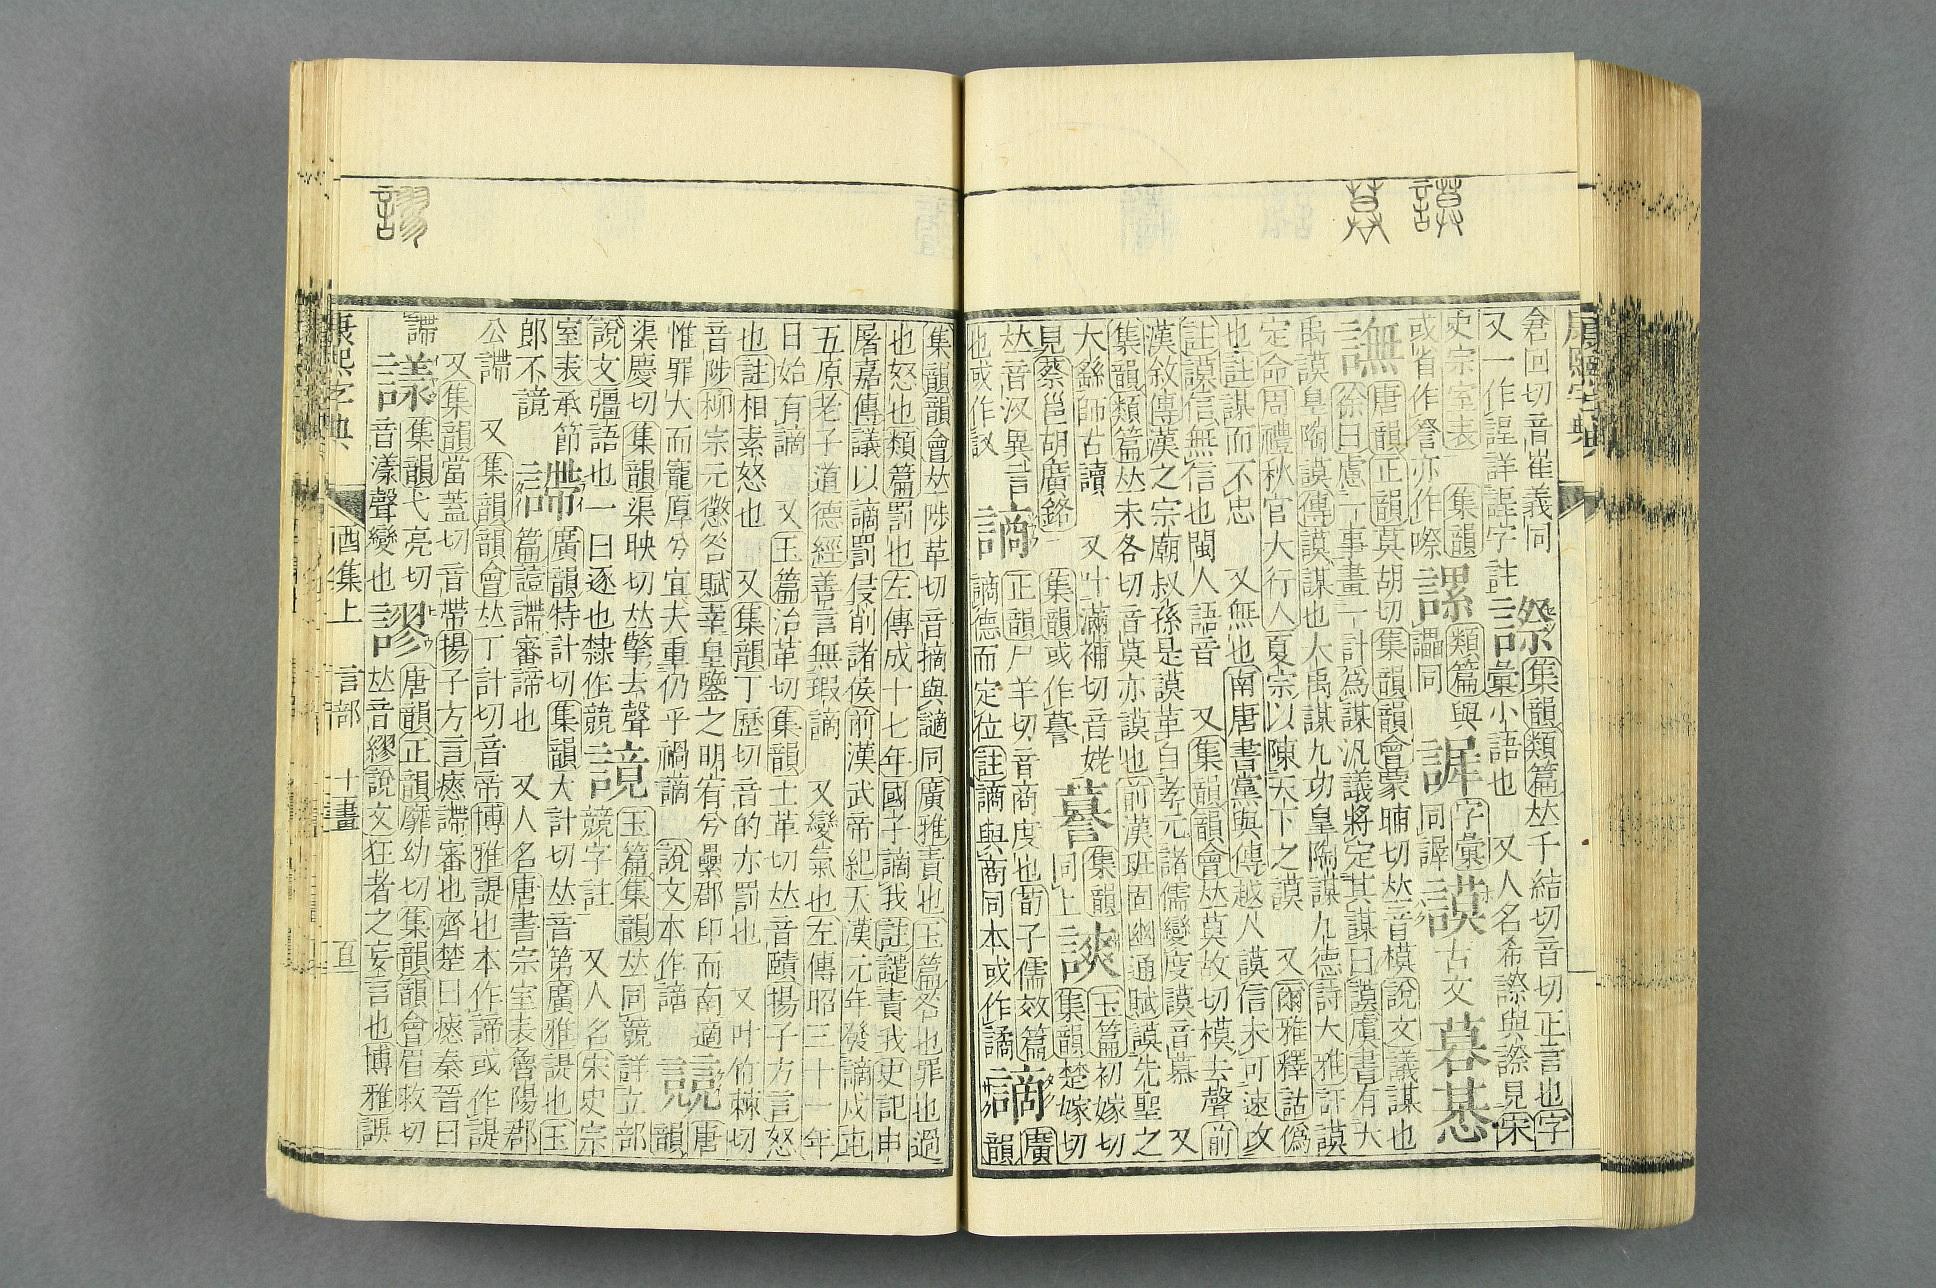 倉回切音崔義同
又一作諻詳諻字註
集韻類篇𠀤千結切音切正言也字
彙小語也 又人名希與見宋
史宗室表 集韻
或省作詧亦作嚓
類篇與
讄同
字彙
同
謨 古文
譕
唐韻正韻莫胡切集韻韻會蒙晡切𠀤音模說文議謀也
徐曰慮一事畫一計為謀汎議將定其謀曰謨虞書有大
禹謨臯陶謨傳謨謀也大禹謀九功皇陶謀九德詩大雅訏謨
定命周禮秋官大行人夏宗以陳天下之謨 又爾雅釋詁偽
也註謀而不忠 又無也南唐書黨與傳越人謨信未可速攻
註謨信無信也閩人語音 又集韻韻會𠀤莫故切模去聲前
漢敘傳漢之宗廟叔孫是謨革自孝元諸儒變度謨音慕 又
集韻類篇𠀤末各切音莫亦謨也前漢班固幽通賦謨先聖之
大繇師古讀 又叶滿補切音姥
見蔡邕胡廣銘 集韻或作謩
謩
集韻
同上
玉篇初嫁切
集韻楚嫁切
𠀤音汊異言
也或作
謪
正韻尸羊切音商度也荀子儒效篇
謪德而定位註謪與商同本或作譎
謫
廣
韻
集韻韻會𠀤陟革切音摘與讁同廣雅責也玉篇咎也罪也過
也怒也類篇罰也左傳成十七年國子謫我註譴責我史記申
屠嘉傳議以謫罰侵削諸侯前漢武帝紀天漢元年發謫戍屯
五原老子道德經善言無瑕謫 又變氣也左傳昭三十一年
日始有謫 又玉篇治革切集韻士革切𠀤音賾揚子方言怒
也註相責怒也 又集韻丁歷切音的亦罰也 又叶竹棘切
音陟柳宗元懲咎賦幸皇鑒之明宥兮纍郡印而南適
惟罪大而寵厚兮宜夫重仍乎禍謫 說文本作謫
唐
韻
渠慶切集韻渠映切𠀤擎去聲
說文彊語也一曰逐也隸作競
竸
玉篇集韻𠀤同競詳立部
競字註 又人名宋史宗
室表承節
郎不
諦
廣韻特計切集韻大計切𠀤音第廣雅諟也玉
篇諠審諦也 又人名唐書宗室表魯陽郡
公 又集韻韻會𠀤丁計切音帝博雅諟也本作諦或作諟
又集韻當蓋切音帶揚子方言瘱審也齊楚曰瘱秦晉曰
集韻弋亮切
音漾聲變也
謬
唐韻正韻靡幼切集韻韻會眉救切
𠀤音繆說文狂者之妄言也博雅誤
康熙字典 酉集上 言部 十一畫
康熙字典